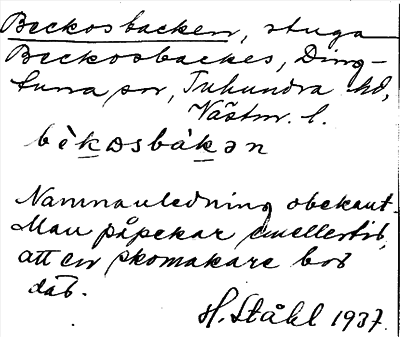 Beckosbacken, stuga
Beckosbackes, Ding-
tuna sn, Tuhundra hd,
Västm. l.
bèkɷsbàkən
Namnanledning obekant.
Man påpekar emellertid,
att en skomakare bott
där.
H. Ståhl 1937.